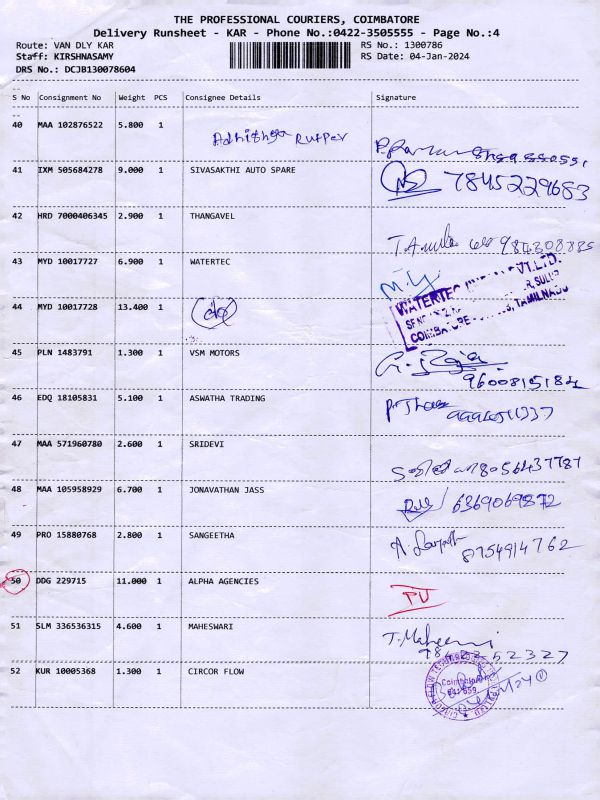 THE PROFESSIONAL COURIERS, COIMBATORE
Delivery Runsheet - KAR - Phone No.:0422-3505555 - Page No.:4
Route: VAN DLY KAR RS No.: 1300786
Staff: KIRSHNASAMY RS Date: 04-Jan-2024
DRS No.: DCJB130078604
S No Consignment No Weight PCS Consignee Details Signature
40 MAA 102876522 5.800 1
41 IXM 505684278 9.000 1 SIVASAKTHI AUTO SPARE 7845229683
42 HRD 7000406345 2.900 1 THANGAVEL
43 MYD 10017727 6.900 1 WATERTEC
WATERTEC
44 MYD 10017728 13.400 1
COIMBATORE TAMILNADU
45 PLN 1483791 1.300 1 VSM MOTORS
46 EDQ 18105831 5.100 1 ASWATHA TRADING
47 MAA 571960780 2.600 1 SRIDEVI 8056437787
48 MAA 105958929 6.700 1 JONAVATHAN JASS 6369069872
49 PRO 15880768 2.800 1 SANGEETHA 8754914762
50 DDG 229715 11.000 1 ALPHA AGENCIES PU
51 SLM 336536315 4.600 1 MAHESWARI
52 KUR 10005368 1.300 1 CIRCOR FLOW